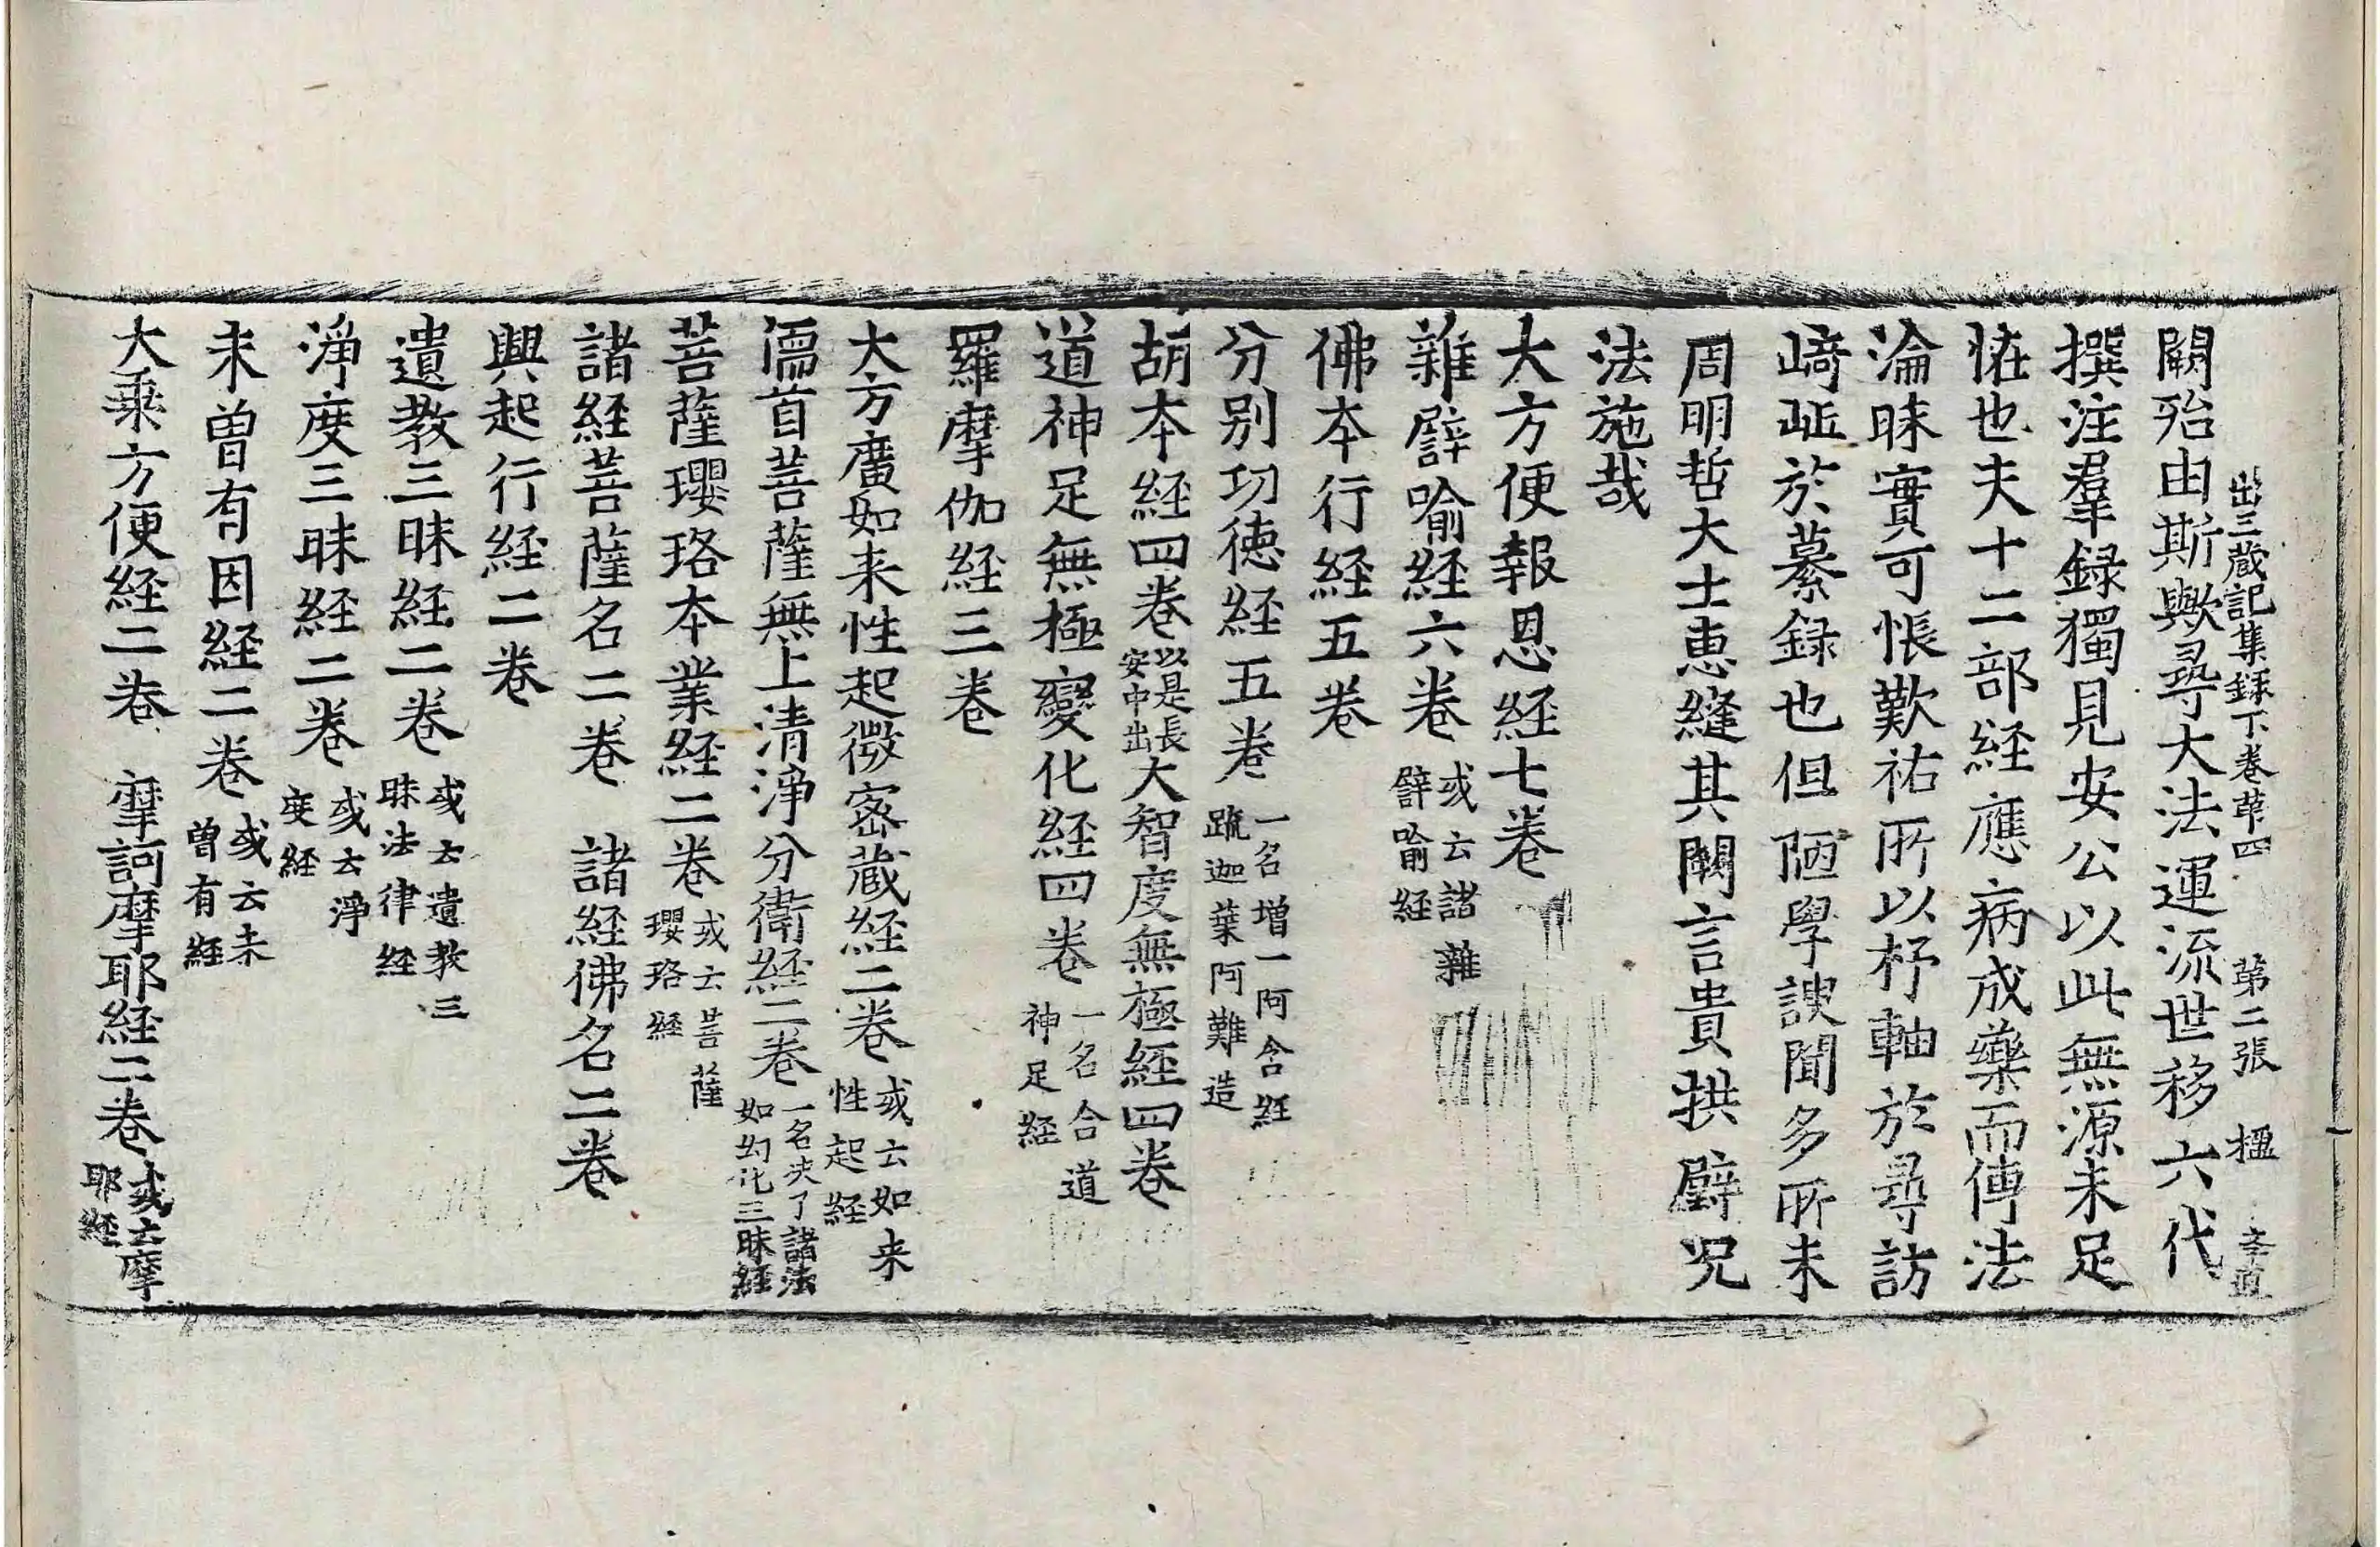 出三蔵記集録下卷苐四　苐二張　楹
闕殆由斯歟尋大法運流世移六代
撰注羣録獨見安公以此無源未足
恠也夫十二部経應病成藥而傳法
淪昧實可悵歎祐所以杼軸於尋訪
崎𡵨於纂録也但陋學謏聞多所未
周明哲大士惠縫其闕言貴拱璧况
法施哉
大方便報恩経七卷
雜譬喻経六卷或云諸雜譬喻経
佛本行経五卷
分別功徳経五卷一名增一阿含経䟽迦葉阿難造
胡本経四卷以是長安中出大智度無極経四卷
道神足無極變化経四卷一名合道神足経
羅摩伽経三卷
大方廣如来性起微宻蔵経二卷或云如来性起経
濡首菩薩無上清淨分衛経二卷一名决了諸法如幻化三昧経
菩薩瓔珞本業経二卷或云菩薩瓔珞経
諸経菩薩名二卷　諸経佛名二卷
興起行経二卷
遺教三昧経二卷或云遺教三昧法律経
淨度三昧経二卷或云淨度経
未曽有因経二卷或云未曽有経
大乗方便経二卷　摩訶摩耶経二卷或云摩耶経